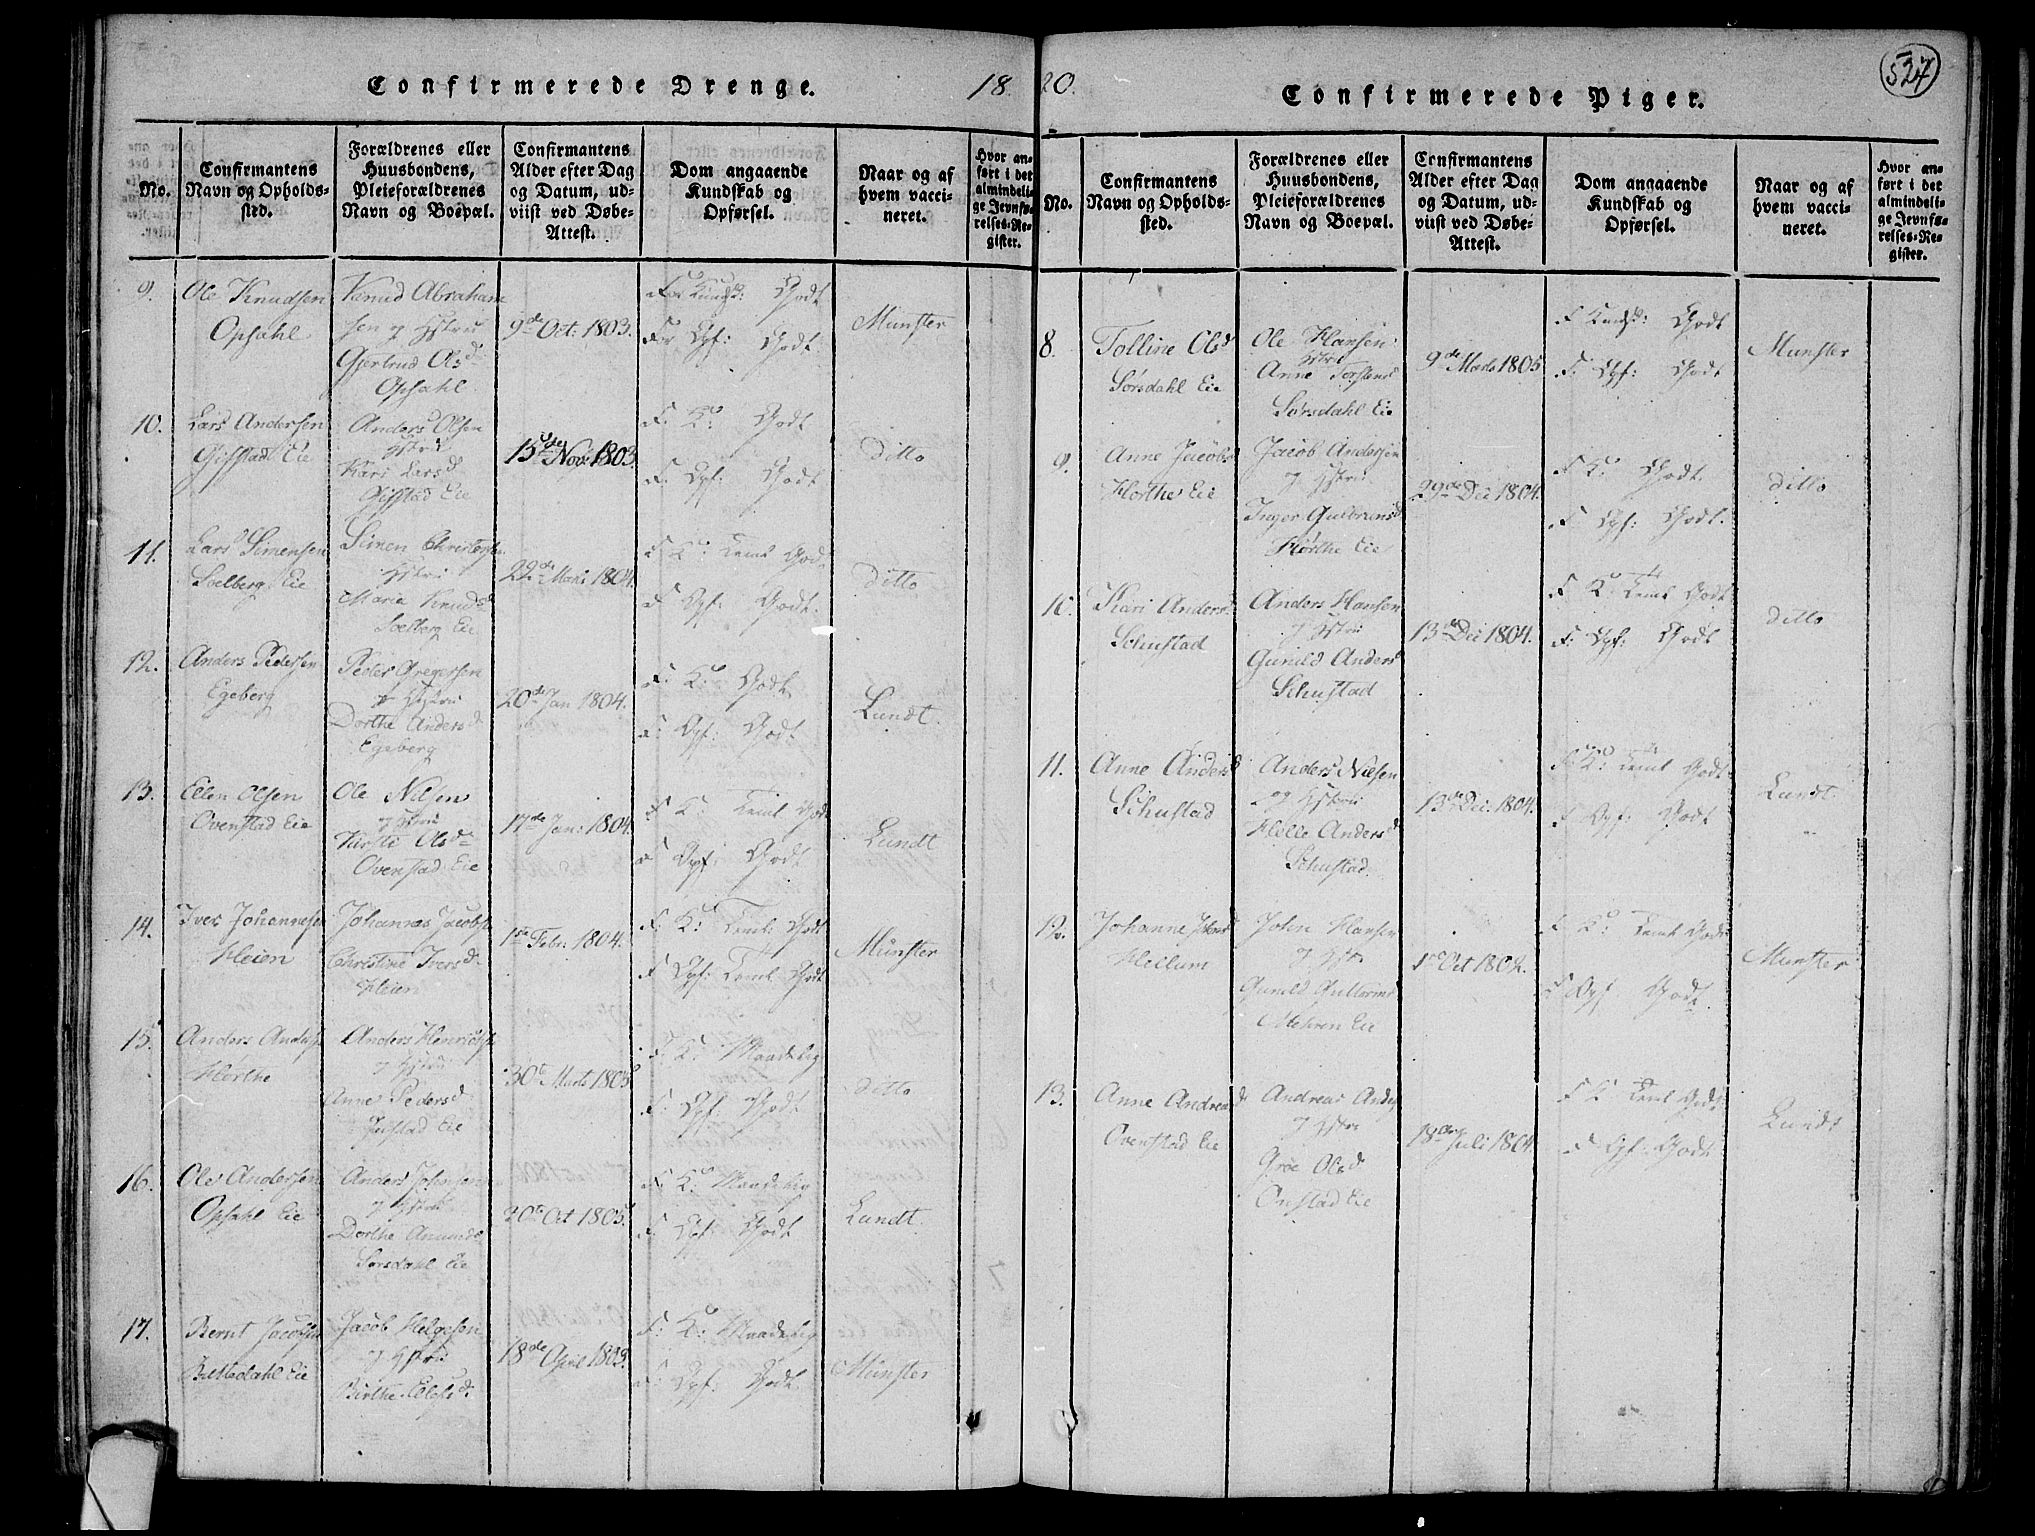 Confirmerede Drenge.
18
No.
Confirmantens Navn og Opholdssted.
Forældrenes eller Huusbondens, Pleieforældrenes Navn og Boepæl.
Confirmantens Alder efter Dag og Datum, udviist ved Døbe-Attest.
Dom angaaende Kundskab og Opførsel.
Naar og af hvem vaccineret.
Hvor anført i det almindelige Jevnførelses-Register.
9.
Ole Knudsen
Opsahl
Knud Abraham
sen og Hstru
Gjertrud Olsd
Opsahl
9de Oct: 1803.
For Kundsk: Godt
For Opf: Godt
Munster
10.
Lars Andersen
Gifstad Eie
Anders Olsen
Hstru
Kari Larsd
Gifstad Eie
15de Nov: 1803.
F. K: Godt
F. Opf: Godt
Ditto
11.
Lars Simensen
Soelberg Eie
Simen Christens
Hstru
Maria Knudsd
Soelberg Eie
22de Mai 1804.
F K: Teml Godt
F Opf: Godt.
Ditto
12.
Anders Pedersen
Egeberg
Peder Gregersen
og Hstru
Dorthe Andersd
Egeberg
20de Jan 1804.
F. K: Godt
F: Opf: Godt
Lundt.
13.
Ellen Olsen
Ovenstad Eie
Ole Nilsen
og Hstru
Kirsti Olsd
Ovenstad Eie
17de Jan: 1804.
F K: Teml Godt
F Opf: Godt
Lundt
14.
Iver Johannesen
Heien
Johannes Jacobs
Christine Iversd
Heien
1ste Febr: 1804.
F. K: Teml: Godt
F Opf: Teml Godt
Münster
15.
Anders Anders
Horthe
Anders Henrichs
og Hstru
Anne Pedersd
Eie
30te Marts 1805
F. K: Maadelig
F. Opf: Godt
Ditto
16.
Ole Andersen
Opsahl Eie
Anders Johnsen
og Hstru
Dorthe Amunds
Sørsdahl Eie
20te Oct 1805
F K: Maadelig
F. Opf: Godt
Lundt.
17.
Bernt Jacobsen
Eie
Jacob Helgesen
og Hstru
Birthe
18de April 1803.
F. K: Maadelig
F: Opf: Godt.
Münster
20.
Confirmerede Piger.
527
No.
Confirmantens Navn og Opholdssted.
Forældrenes eller Huusbondens, Pleieforældrenes Navn og Boepæl.
Confirmantens Alder efter Dag og Datum, udviist ved Døbe-Attest.
Dom angaaende Kundskab og Opførsel.
Naar og af hvem vaccineret.
Hvor anført i det almindelige Jevnførelses-Register.
8.
Tolline Olsd
Sørsdahl Eie
Ole Hansen
Hstru
Anne Torstensd
Sørsdahl Eie
9de Marts 1805
F Kundsk: Godt
F. Opf: Godt
Munster
9.
Anne Jacobsd
Horthe Eie
Jacob Andersen
og Hstru
Inger Gulbransd
Horthe Eie
29de Dec 1804.
F K: Godt.
F Opf: Godt.
Ditto
10.
Kari Andersd
Schustad
Anders Hansen
og Hstru
Gunild Andersd
Schustad
13de Dec 1804.
F K: Teml Godt
F. Opf: Godt
Ditto
11.
Anne Andersd
Schustad
Anders Nielsen
og Hstru
Helle Andersd
Schustad
13de Dec: 1804.
F K: Teml Godt
F Opf: Godt
Lundt.
12.
Johanne Johnsd
Hellum
John Hansen
og Hstr
Gunild
Mehren Eie
1ste Oct 1802.
F K: Teml Godt
F Opf. Godt.
Munster
13.
Anne Andreasd
Ovenstad Eie
Andreas Anders
og Hstru
Groe Olsd
Onstad Eie
18de Juli 1804
F K Teml Godt
F Opf: Godt
Lundt